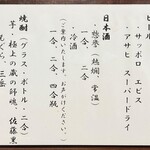 ビール
・サッポロ エビス
・アサヒ スーパードライ
日本酒
・悠誉（熱燗・常温）
一合、二合
・冷酒
（ご案内いたします。お声がけください。）
一合、二合、四合瓶
焼酎（グラス・ボトル・二合）
芋 ・極上の蔵の師魂 ・佐藤黒
・もぐら ・三岳